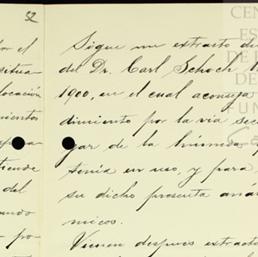 52
Sigue un extracto de
del Dr. Carl Schoch
1900, en el cual aconseja
dimiento por la vía sec
gar de la húmeda
tenía en uso, y para
su dicho presenta aná
micos.
Vienen despues extracto
or el
situa
locación
mientos
tiende
del
undo
por